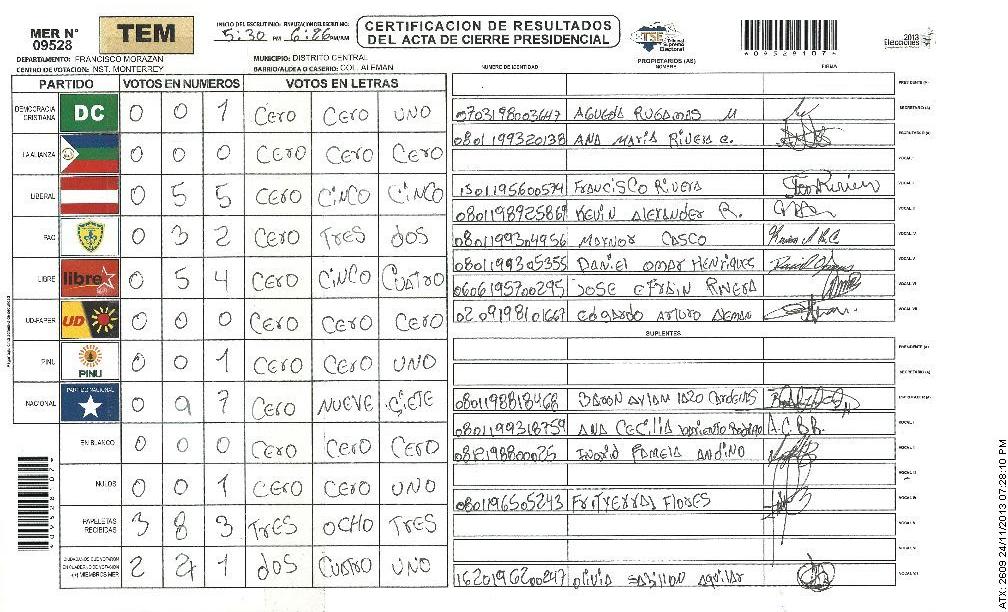 MER N° 09528
TEM
INICIO DEL ESCRUTINIO: 5:30 PM
6:26 PM/AM
CERTIFICACION DE RESULTADOS
DEL ACTA DE CIERRE PRESIDENCIAL
TSE Tribunal Supremo Electoral
*09528107*
2013 Elecciones
DEPARTAMENTO: FRANCISCO MORAZAN
MUNICIPIO: DISTRITO CENTRAL
CENTRO DE VOTACION: NST. MONTERREY
BARRIO/ALDEA O CASERIO: COL. ALEMAN
PROPIETARIOS (AS)
NUMERO DE IDENTIDAD NOMBRE FIRMA
PARTIDO VOTOS EN NUMEROS VOTOS EN LETRAS
DEMOCRACIA CRISTIANA DC 0 0 1 CERO CERO UNO
LA ALIANZA 0 0 0 CERO CERO CERO
LIBERAL 0 5 5 CERO CINCO CINCO
PAC 0 3 2 CERO TRES DOS
LIBRE libre 0 5 4 CERO CINCO CUATRO
UD-FAPER UD 0 0 0 CERO CERO CERO
PINU PINU 0 0 1 CERO CERO UNO
NACIONAL PARTIDO NACIONAL 0 9 7 CERO NUEVE SIETE
EN BLANCO 0 0 0 CERO CERO CERO
NULOS 0 0 1 CERO CERO UNO
PAPELETAS RECIBIDAS 3 8 3 TRES OCHO TRES
CIUDADANOS QUE VOTARON EN CUADERNO DE VOTACION (+) MIEMBROS MER 2 4 1 DOS CUATRO UNO
PRESIDENTE (A)
0703198003647 AGUEDA RUGAMAS M SECRETARIO (A)
0801199320138 ANA MARIA RIVERA C. ESCRUTADOR (A)
VOCAL I
1501195600574 FRANCISCO RIVERA VOCAL II
KEVIN ALEXANDER R.
0801199304956 MAYNOR CASCO VOCAL IV
0801199305355 DANIEL OMAR HENRIQUES VOCAL V
0606195700295 JOSE EFRAIN RIVERA VOCAL VI
0209198101667 EDGARDO ARTURO ALEMAN VOCAL VII
SUPLENTES
PRESIDENTE (A)
SECRETARIO (A)
0801198818468 ESCRUTADOR (A)
0801199318759 ANA CECILIA A.C.B.R. VOCAL I
INGRID PAMELA ANDINO
0801196505243 FLORES
1620196200247 OLIVIA AGUILAR
*09528107*
ATX-2609 24/11/2013 07:28:10 PM